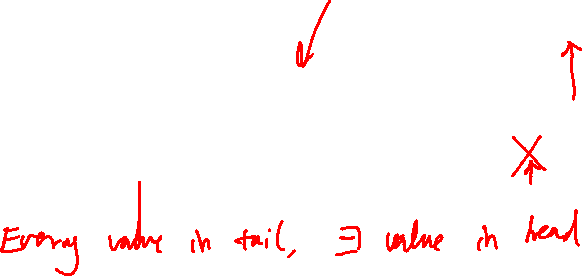 Every value in tail, ∃ value in head